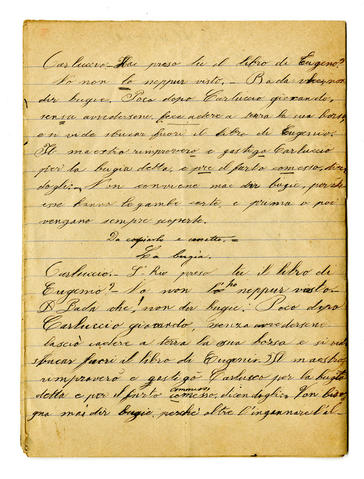 Carluccio - Hai preso tu il libro de Eugeno?
No non lo neppur visto, - Bada di non
dir bugie. Poco dopo Carluccio giocando,
senza avvedersene, fece cadere a terra la sua borsa
e si vide sbucar fuori il libro di Eugenio.
Il maestro rimproverò e gastigo Carluccio
per la bugia detta, e pre il furto comesso, dicen
dogli: Non conviene mai dir bugie, perchè
esse hanno le gambe corte, e prima o poi
vengano sempre scoperte.
Da copiarlo e corretto.
La bugia.
Carluccio. - Hai preso tu il libro di
Eugenio? No non l'ho neppur visto -
Bada che! non dir bugie. Poco dopo
Carluccio giocando, senza avvedersene
lasciò cadere a terra la sua borsa e si vide
sbucar fuori il libro di Eugenio. Il maestro
rimproverò e gastigò Carluccio per la bugia
detta e per il furto commesso, dicendogli: Non biso
gna mai dir bugie, perchè oltre l'ingannare l'al-